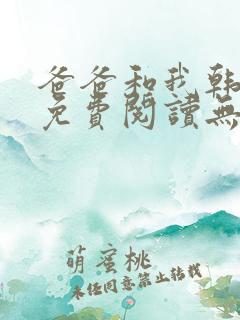 爸爸和我韩
免費閱讀無
萌蜜桃
未经同意禁止转载